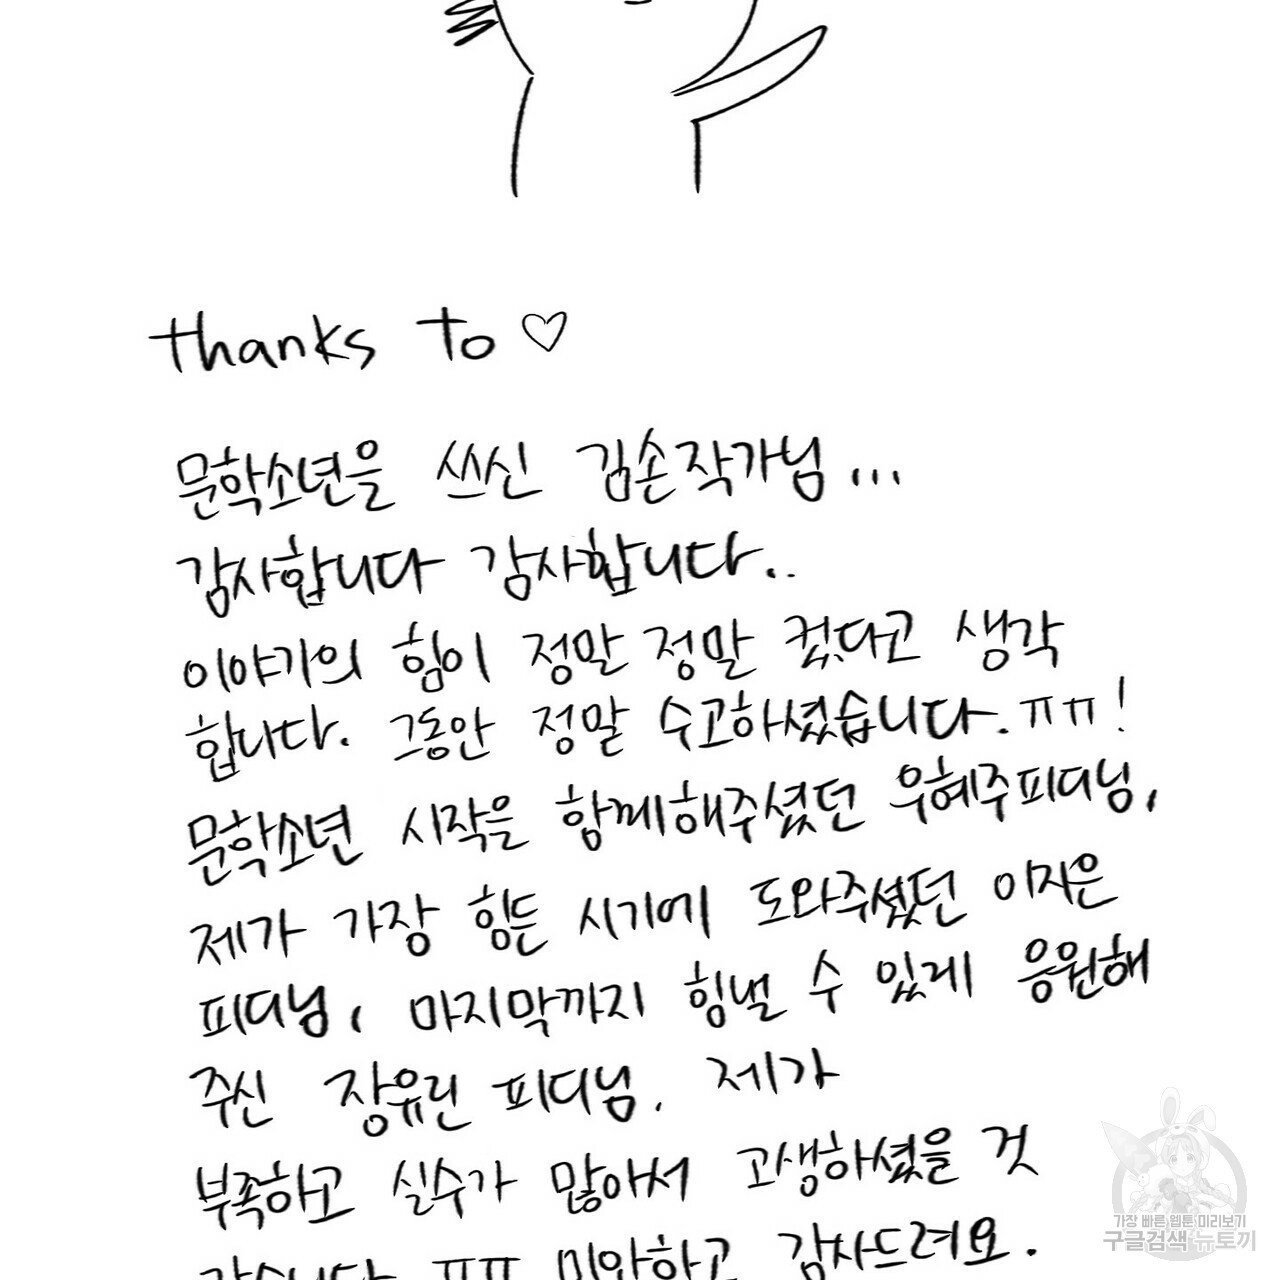 thanks to ♡
문학소년을 쓰신 김손작가님...
감사합니다 감사합니다..
이야기의 힘이 정말 정말 컸다고 생각
합니다. 그동안 정말 수고하셨습니다.ㅠㅠ!
문학소년 시작을 함께해주셨던 우혜주피디님,
제가 가장 힘든 시기에 도와주셨던 이지은
피디님, 마지막까지 힘낼 수 있게 응원해
주신 장유린 피디님. 제가
부족하고 실수가 많아서 고생하셨을 것
같습니다 ㅠㅠ 미안하고 감사드려요.
가장 빠른 웹툰 미리보기
구글검색 뉴토끼